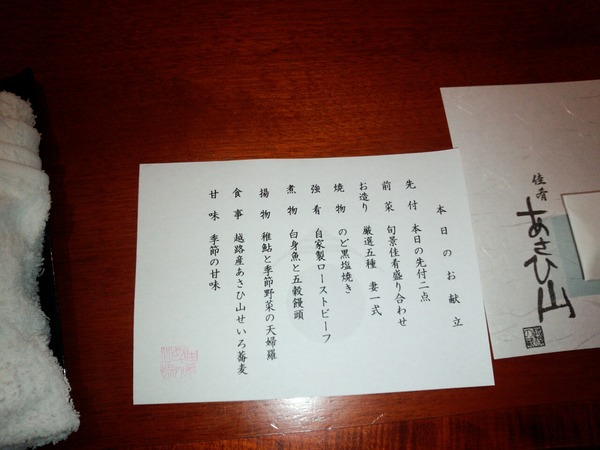 本日のお献立
先付 本日の先付二点
前菜 旬景佳肴盛り合わせ
お造り 厳選五種 妻一式
焼物 のど黒塩焼き
強肴 自家製ローストビーフ
煮物 白身魚と五穀饅頭
揚物 稚鮎と季節野菜の天婦羅
食事 越路産あさひ山せいろ蕎麦
甘味 季節の甘味
佳肴
あさひ山